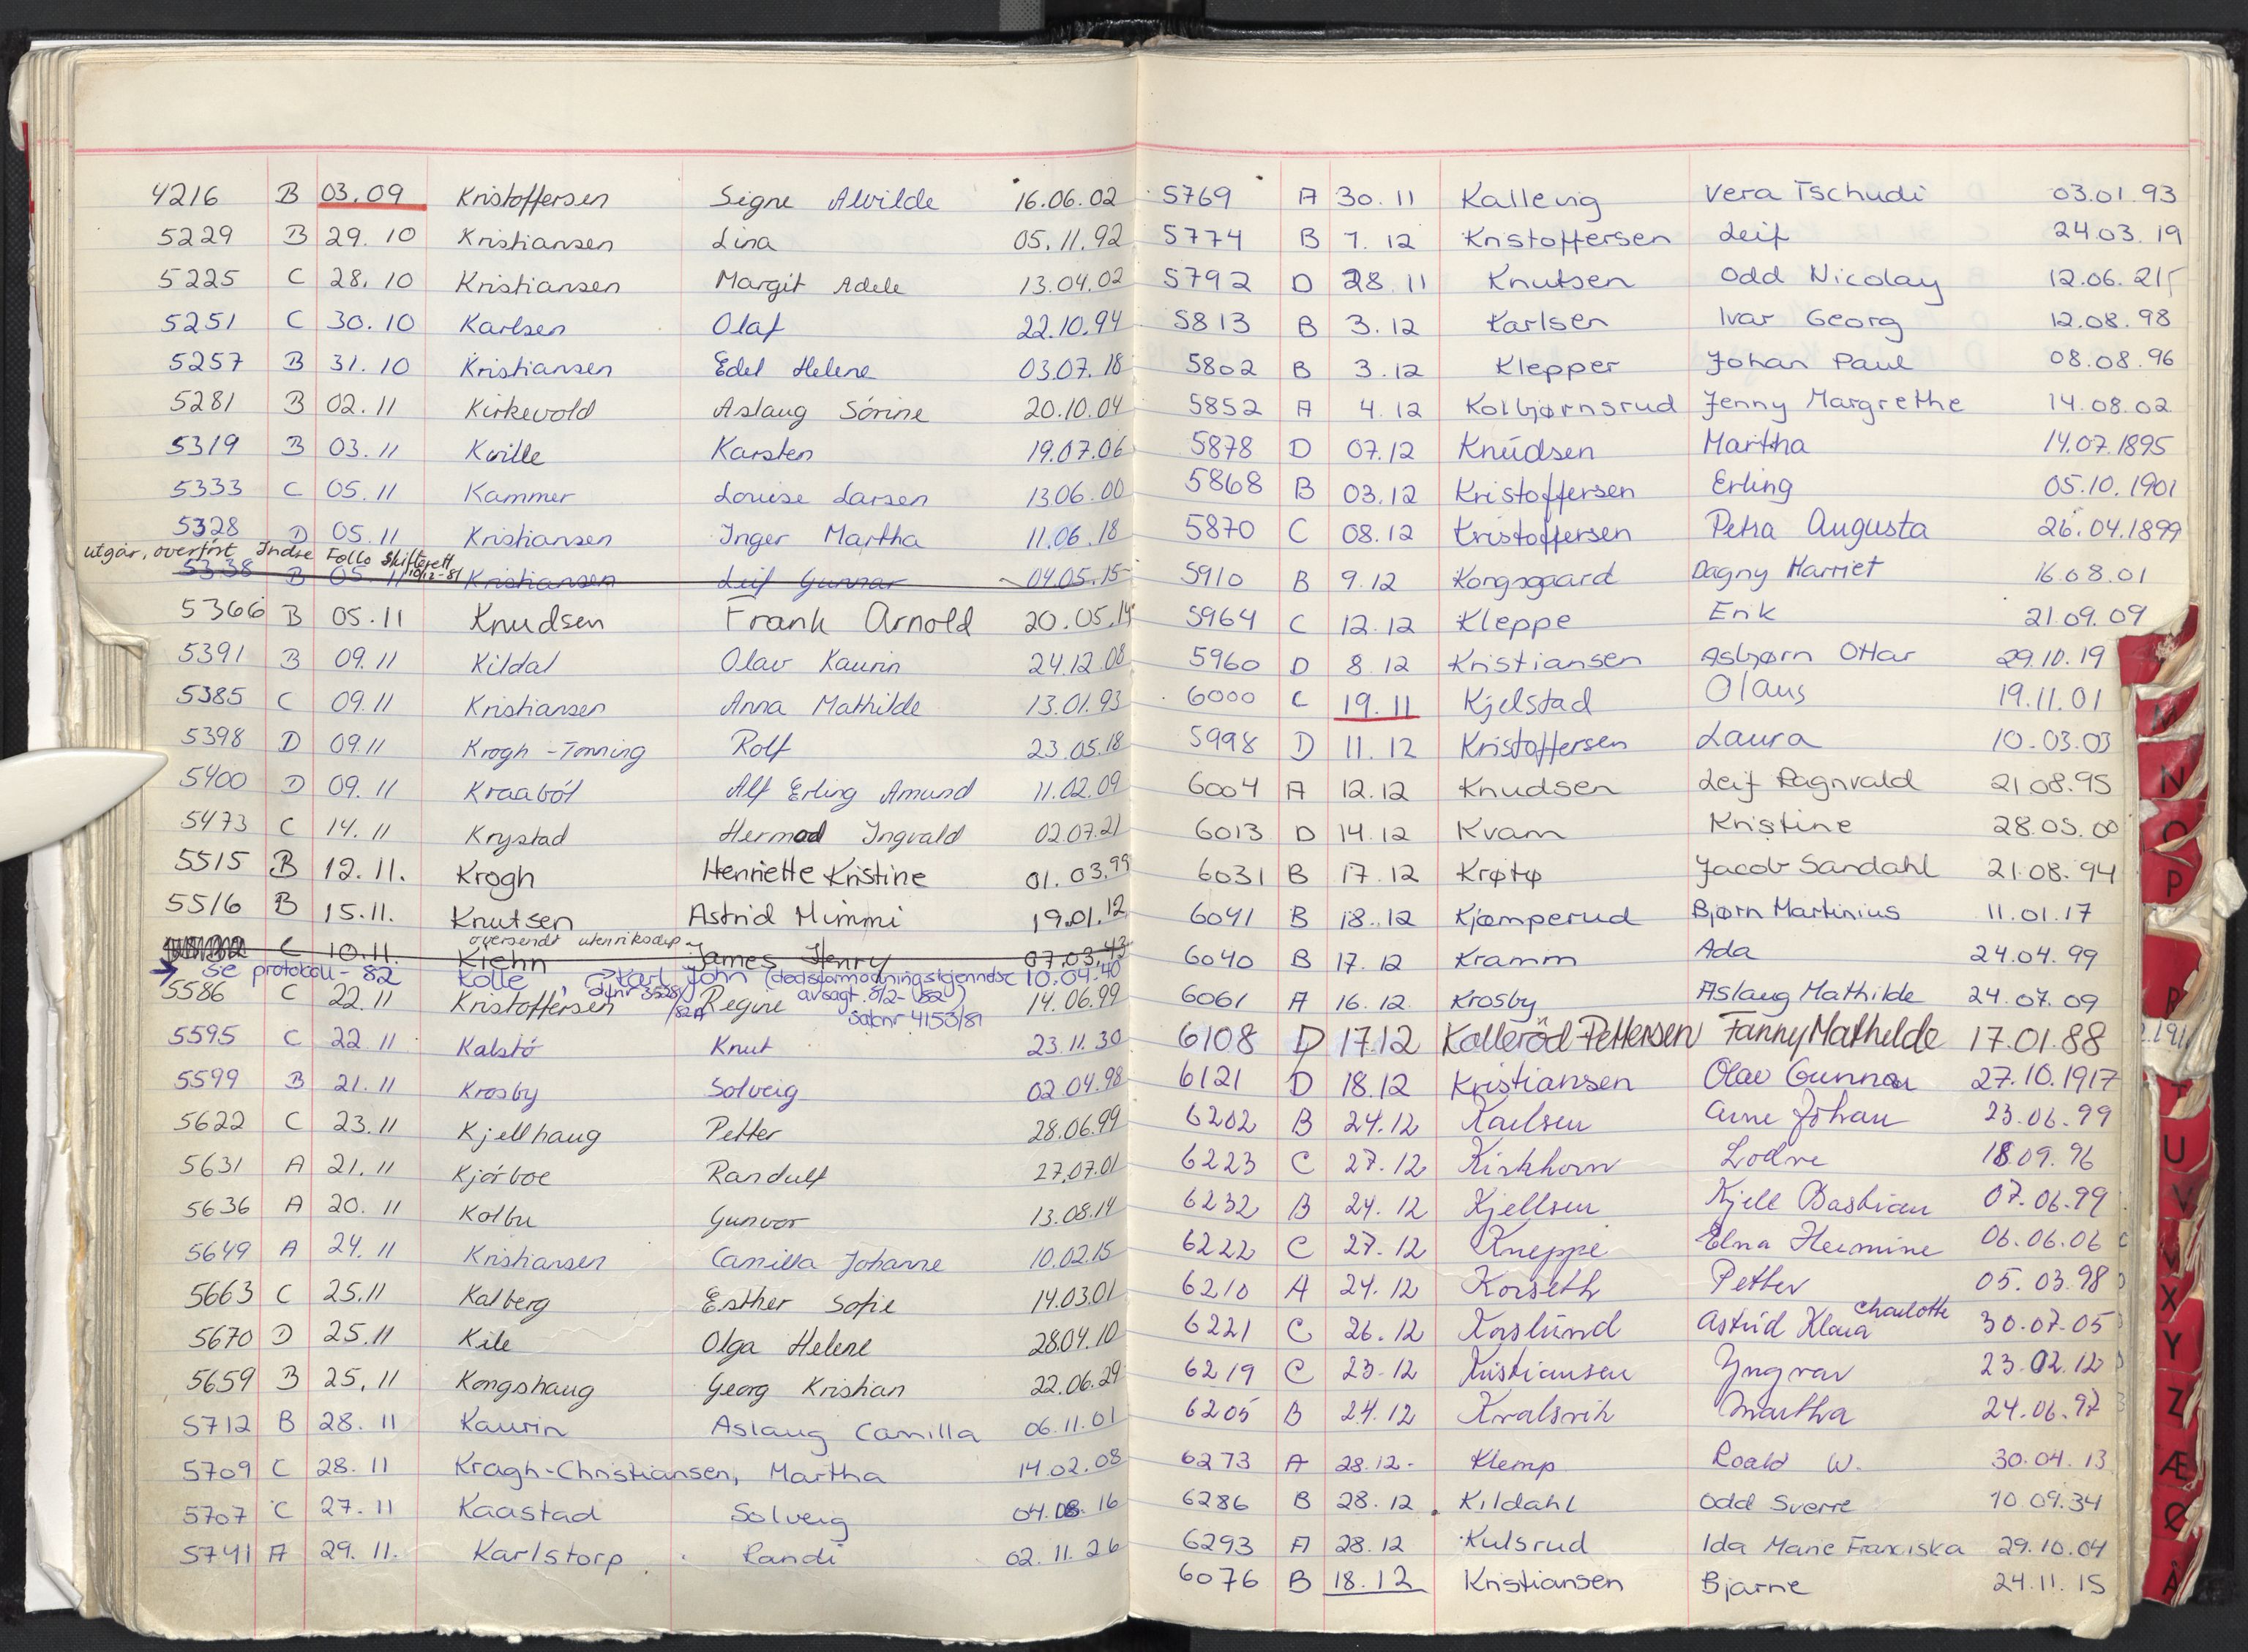 4216 B 03.09 Kristoffersen Signe Alvilde 16.06.02
5229 B 29.10 Kristiansen Lina 05.11.92
5225 C 28.10 Kristiansen Margit Adele 13.04.02
5251 C 30.10 Karlsen Olaf 22.10.94
5257 B 31.10 Kristiansen Edel Helene 03.07.18
5281 B 02.11 Kirkevold Aslaug Sórine 20.10.04
5319 B 03.11 Kville Karsten 19.07.06
5333 C 05.11 Kammer Louise Larsen 13.06.00
5328 D 05.11 Kristiansen Inger Martha 11.06.18
utgår, overført Indre Follo Skifterett 10/12-81
5338 B 05.11 Kristiansen Leif Gunnar 04.05.15
5366 B 05.11 Knudsen Frank Arnold 20.05.14
5391 B 09.11 Kildal Olav Kaurin 24.12.08
5385 C 09.11 Kristiansen Anna Mathilde 13.01.93
5398 D 09.11 Krogh-Tonning Rolf 23.05.18
5400 D 09.11 Kraaból Alf Erling Amund 11.02.09
5473 C 14.11 Krystad Hermod Ingvald 02.07.21
5515 B 12.11. Krogh Henriette Kristine 01.03.99
5516 B 15.11. Knutsen Astrid Mimmi 19.01.12
oversendt utenriksdep
C 10.11. Kiehn James Henry 07.03.43
→ se protokoll - 82 Kolle, Karl John (dødsformodningskjenndse 10.04.40
5586 C 22.11 Kristoffersen Regine 14.06.99
djnr 3528/82A avsagt 8/2-82)
saknr 4153/81
5595 C 22.11 Kalstó Knut 23.11.30
5599 B 21.11 Krosby Solveig 02.04.98
5622 C 23.11 Kjellhaug Petter 28.06.99
5631 A 21.11 Kjórboe Randulf 27.07.01
5636 A 20.11 Kolbu Gunvor 13.08.14
5649 A 24.11 Kristiansen Camilla Johanne 10.02.15
5663 C 25.11 Kalberg Esther Sofie 14.03.01
5670 D 25.11 Kile Olga Helene 28.04.10
5659 B 25.11 Kongshaug Georg Kristian 22.06.29
5712 B 28.11 Kaurin Aslaug Camilla 06.11.01
5709 C 28.11 Kragh-Christiansen, Martha 14.02.08
5707 C 27.11 Kaastad Solveig 04.08.16
5741 A 29.11. Karlstorp Randi 02.11.26
5769 A 30.11 Kallevig Vera Tschudi 03.01.93
5774 B 1.12 Kristoffersen Leif 24.03.19
5792 D 28.11 Knutsen Odd Nicolay 12.06.21
5813 B 3.12 Karlsen Ivar Georg 12.08.98
5802 B 3.12 Klepper Johan Paul 08.08.96
5852 A 4.12 Kolbjørnsrud Jenny Margrethe 14.08.02
5878 D 07.12 Knudsen Martha 14.07.1895
5868 B 03.12 Kristoffersen Erling 05.10.1901
5870 C 08.12 Kristoffersen Petra Augusta 26.04.1899
5910 B 9.12 Kongsgaard Dagny Harriet 16.08.01
5964 C 12.12 Kleppe Erik 21.09.09
5960 D 8.12 Kristiansen Asbjørn Ottar 29.10.19
6000 C 19.11 Kjelstad Olaus 19.11.01
5998 D 11.12 Kristoffersen Laura 10.03.03
6004 A 12.12 Knudsen Leif Ragnvald 21.08.95
6013 D 14.12 Kvam Kristine 28.05.00
6031 B 17.12 Krøtø Jacob Sandahl 21.08.94
6041 B 18.12 Kjæmperud Bjørn Martinius 11.01.17
6040 B 17.12 Kramm Ada 24.04.99
6061 A 16.12. Krosby Aslaug Mathilde 24.07.09
6108 D 17.12 Kolleröd Pettersen Fanny Mathilde 17.01.88
6121 D 18.12 Kristiansen Olav Gunnar 27.10.1917
6202 B 24.12 Karlsen Arne Johan 23.06.99
6223 C 27.12 Kirkhorn Lodve 18.09.96
6232 B 24.12 Kjellsen Kjell Bastian 07.06.99
6222 C 27.12 Kneppe Elna Hermine 06.06.06
6210 A 24.12 Korseth Petter 05.03.98
6221 C 26.12 Korslund Astrid Klara Charlotte 30.07.05
6219 C 23.12 Kristiansen Yngvar 23.02.12
6205 B 24.12 Kvalsvik Martha 24.06.97
6273 A 28.12- Klemp Roald W. 30.04.13
6286 B 28.12. Kildahl Odd Sverre 10.09.34
6293 A 28.12 Kulsrud Ida Marie Franciska 29.10.04
6076 B 18.12 Kristiansen Bjarne 24.11.15
M
N
O
P
R
T
U
V
X
Y
Z
Æ
Ø
Å